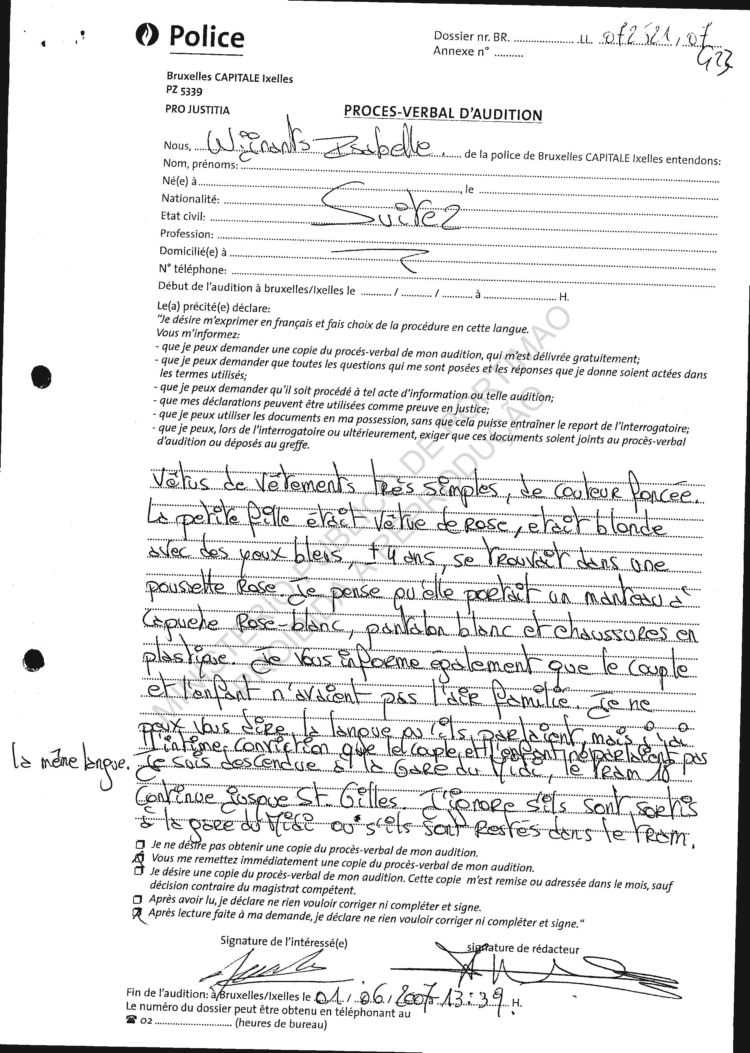 Police
Dossier nr. BR. .................... LL 072521,07
Annexe n° ..........
G23
Bruxelles CAPITALE Ixelles
PZ 5339
PRO JUSTITIA
PROCES-VERBAL D'AUDITION
Nous, Wijnants Isabelle, de la police de Bruxelles CAPITALE Ixelles entendons:
Nom, prénoms:
Né(e) à , le
Nationalité:
Suite 2
Etat civil:
Profession:
Domicilié(e) à
N° téléphone:
Début de l'audition à bruxelles/Ixelles le .......... / .......... / .......... à .................... H.
Le(a) précité(e) déclare:
"Je désire m'exprimer en français et fais choix de la procédure en cette langue.
Vous m'informez:
- que je peux demander une copie du procés-verbal de mon audition, qui m'est délivrée gratuitement;
- que je peux demander que toutes les questions qui me sont posées et les réponses que je donne soient actées dans
les termes utilisés;
- que je peux demander qu'il soit procédé à tel acte d'information ou telle audition;
- que mes déclarations peuvent être utilisées comme preuve en justice;
- que je peux utiliser les documents en ma possession, sans que cela puisse entraîner le report de l'interrogatoire;
- que je peux, lors de l'interrogatoire ou ultérieurement, exiger que ces documents soient joints au procès-verbal
d'audition ou déposés au greffe.
MINISTERIO PUBLICO DE PORTIMAO
PROIBIDA A REPRODUCAO
Vêtus de vêtements très simples, de couleur foncée.
La petite fille était vêtue de rose, était blonde
avec des yeux bleus, ± 4 ans, se trouvait dans une
poussette rose. Je pense qu'elle portait un manteau à
capuche rose-blanc, pantalon blanc et chaussures en
plastique. Je vous informe également que le couple
et l'enfant n'avaient pas l'air familié. Je ne
peux vous dire la langue où ils parlaient mais j'ai
l'intime conviction que le couple et l'enfant ne parlaient pas
la même langue. Je suis descendue à la Gare du Midi, le tram 18
continue jusque St. Gilles. J'ignore s'ils sont sortis
à la gare du Midi ou s'ils sont restés dans le tram.
Je ne désire pas obtenir une copie du procès-verbal de mon audition.
Vous me remettez immédiatement une copie du procès-verbal de mon audition.
Je désire une copie du procès-verbal de mon audition. Cette copie m'est remise ou adressée dans le mois, sauf
décision contraire du magistrat compétent.
Après avoir lu, je déclare ne rien vouloir corriger ni compléter et signe.
Après lecture faite à ma demande, je déclare ne rien vouloir corriger ni compléter et signe."
Signature de l'intéressé(e) signature de rédacteur
Fin de l'audition: à Bruxelles/Ixelles le 01/06/2007 à 13:39 H.
Le numéro du dossier peut être obtenu en téléphonant au
☎ 02 .................... (heures de bureau)